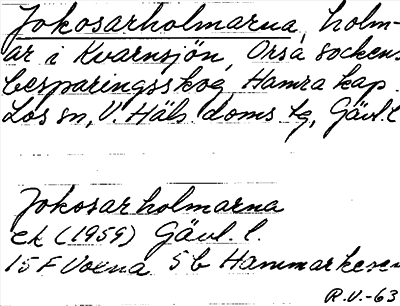 Jokosarholmarna, holm-
ar i Kvarnsjön, Orsa sockens
besparingsskog Hamra kap.
Los sn, V. Häls. doms. tg, Gävl. l
Jokosarholmarna
ek (1959) Gävl. l.
15 F Voxna 5b Hammarkesen
R.V.-63